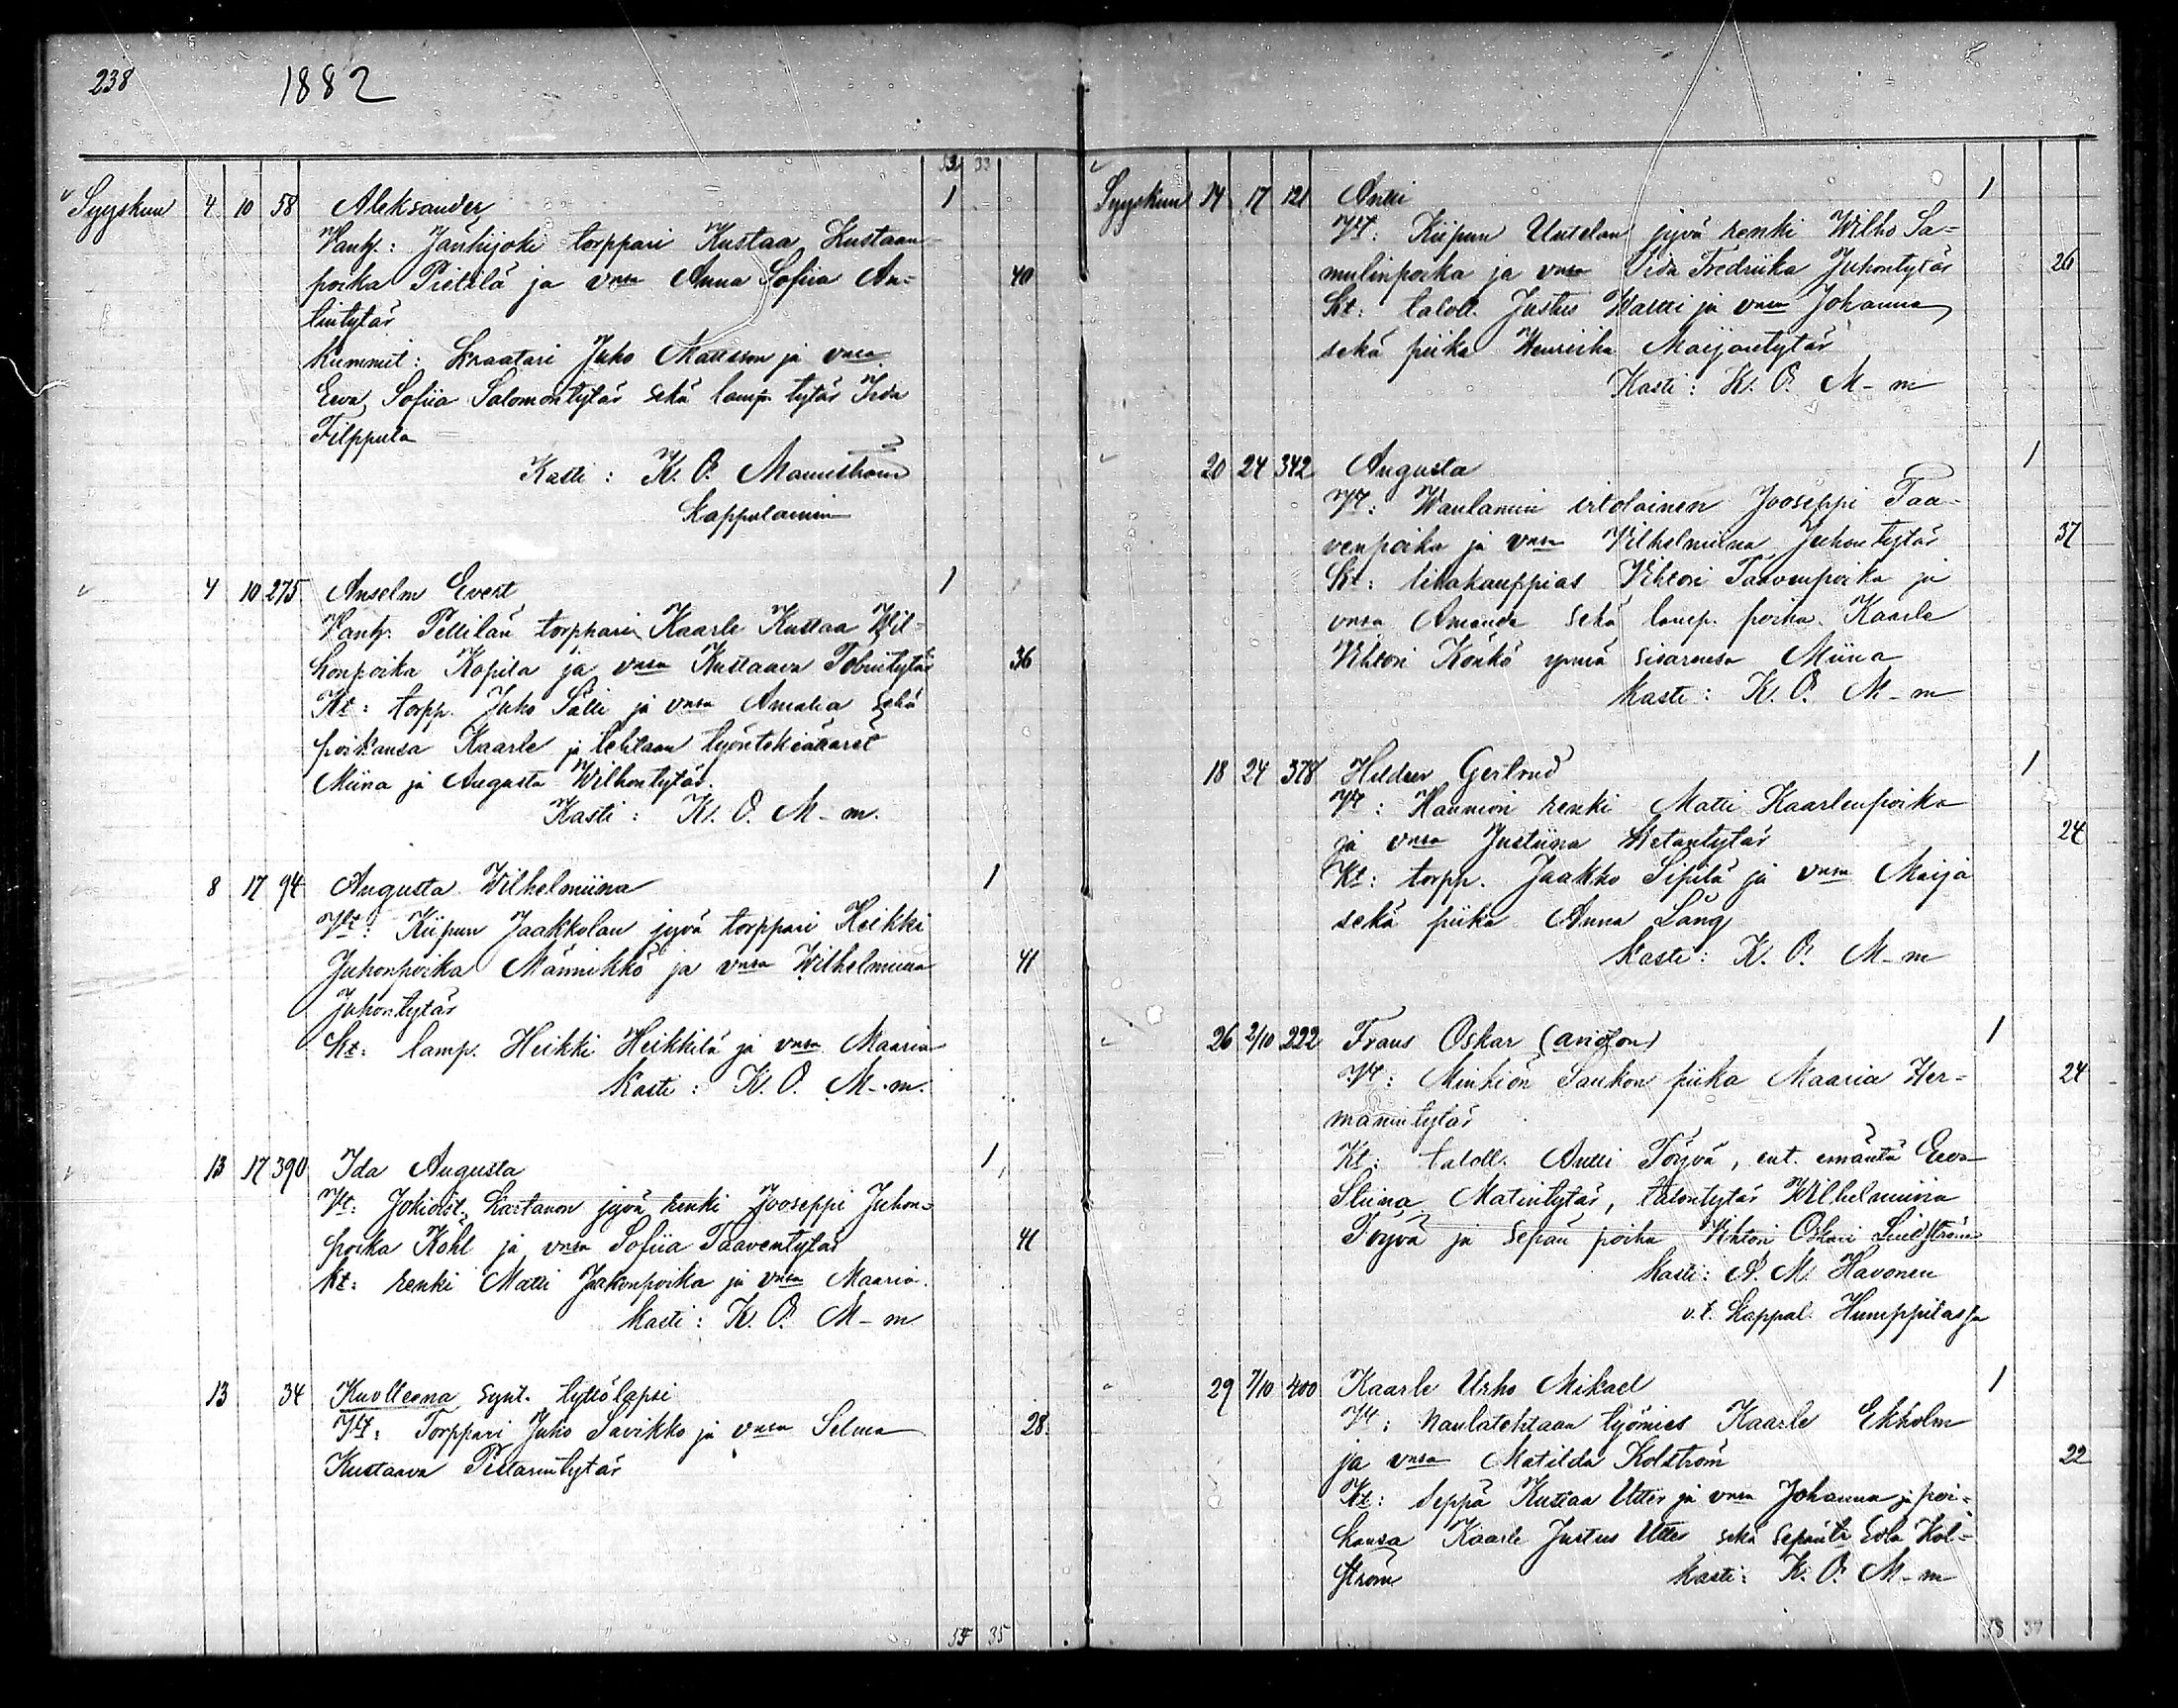 238 1882
53 33
Syyskuu 4 10 58 Aleksander 1
Vanh: Jänhijoki torppari Kustaa Kustaan-
poika Pietilä ja vnsa Anna Sofiia An- 40
tintytär
Kummit: Kraatari Juho Mattsson ja vnsa
Eeva Sofiia Salomontytär sekä lamp. tytär Iida
Filppula
Kasti: K. O. Mannström
Kappalainen
4 10 275 Anselm Evert 1
Vanh. Pellilän torppari Kaarle Kustaa Wil-
honpoika Kopila ja vnsa Kustaava Tobiintytär 36
Kt: torpp. Juho Sälli ja vnsa Amalia sekä
poikansa Kaarle ja tehtaan työntekiättäret
Miina ja Augusta Wilhontytär.
Kasti: K. O. M-m.
8 17 94 Augusta Wilhelmiina 1
Vt: Kiipun Jaakkolan jyvä torppari Heikki
Juhonpoika Männikkö ja vnsa Wilhelmiina 41
Juhontytär
Kt: lamp. Heikki Heikkilä ja vnsa Maaria
Kasti: K. O. M-m.
13 17 390 Ida Augusta 1
Vt: Jokioist. Kartanon jyvä renki Jooseppi Juhon-
poika Kohl ja vnsa Sofiia Taaventytär 41
Kt: renki Matti Jaakonpoika ja vnsa Maaria.
Kasti: K. O. M-m
13 34 Kuolleena synt. tyttölapsi
Vt: Torppari Juho Savikko ja vnsa Selma 28
Kustaava Pietarintytär
35
Syyskuu 14 17 121 Antti 1
Vt: Kiipun Uutelan jyvä renki Wilho Sa-
mulinpoika ja vnsa Iida Fredriika Juhontytär 26
Kt: taloll. Justus Waltti ja vnsa Johanna
sekä piika Henriika Maijantytär
Kasti: K. O. M-m
20 24 342 Augusta 1
Vt: Waulamin irtolainen Jooseppi Taa-
venpoika ja vnsa Vilhelmiina Juhontytär 37
Kt: lihakauppias Vihtori Taavenpoika ja
vnsa Amanda sekä lamp. poika Kaarle
Vihtori Könkö ynnä sisarensa Miina
Kasti: K. O. M-m
18 24 378 Hildur Gertrud 1
Vt: Haunion renki Matti Kaarlenpoika
ja vnsa Justiina Retantytär 24
Kt: torpp. Jaakko Sipilä ja vnsa Maija
sekä piika Anna Lång
Kasti: K. O. M-m
26 2/10 222 Frans Oskar (avioton) 1
Vt: Minkiön Saukon piika Maaria Her- 24
mannintytär
Kt: taloll. Antti Töyvä, ent. emäntä Eeva
Stiina Matintytär, talontytär Wilhelmiina
Töyvä ja sepän poika Vihtori Oskari Lindström
Kasti: A. M. Havonen
v.t. Kappal. Humppilassa
29 7/10 400 Kaarle Urho Mikael 1
Vt: Naulatehtaan työmies Kaarle Ekholm
ja vnsa Matilda Kolström 22
Kt: Seppä Kustaa Utter ja vnsa Johanna ja poi-
kansa Kaarle Justus Utter sekä Kol-
ström Kasti: K. O. M-m